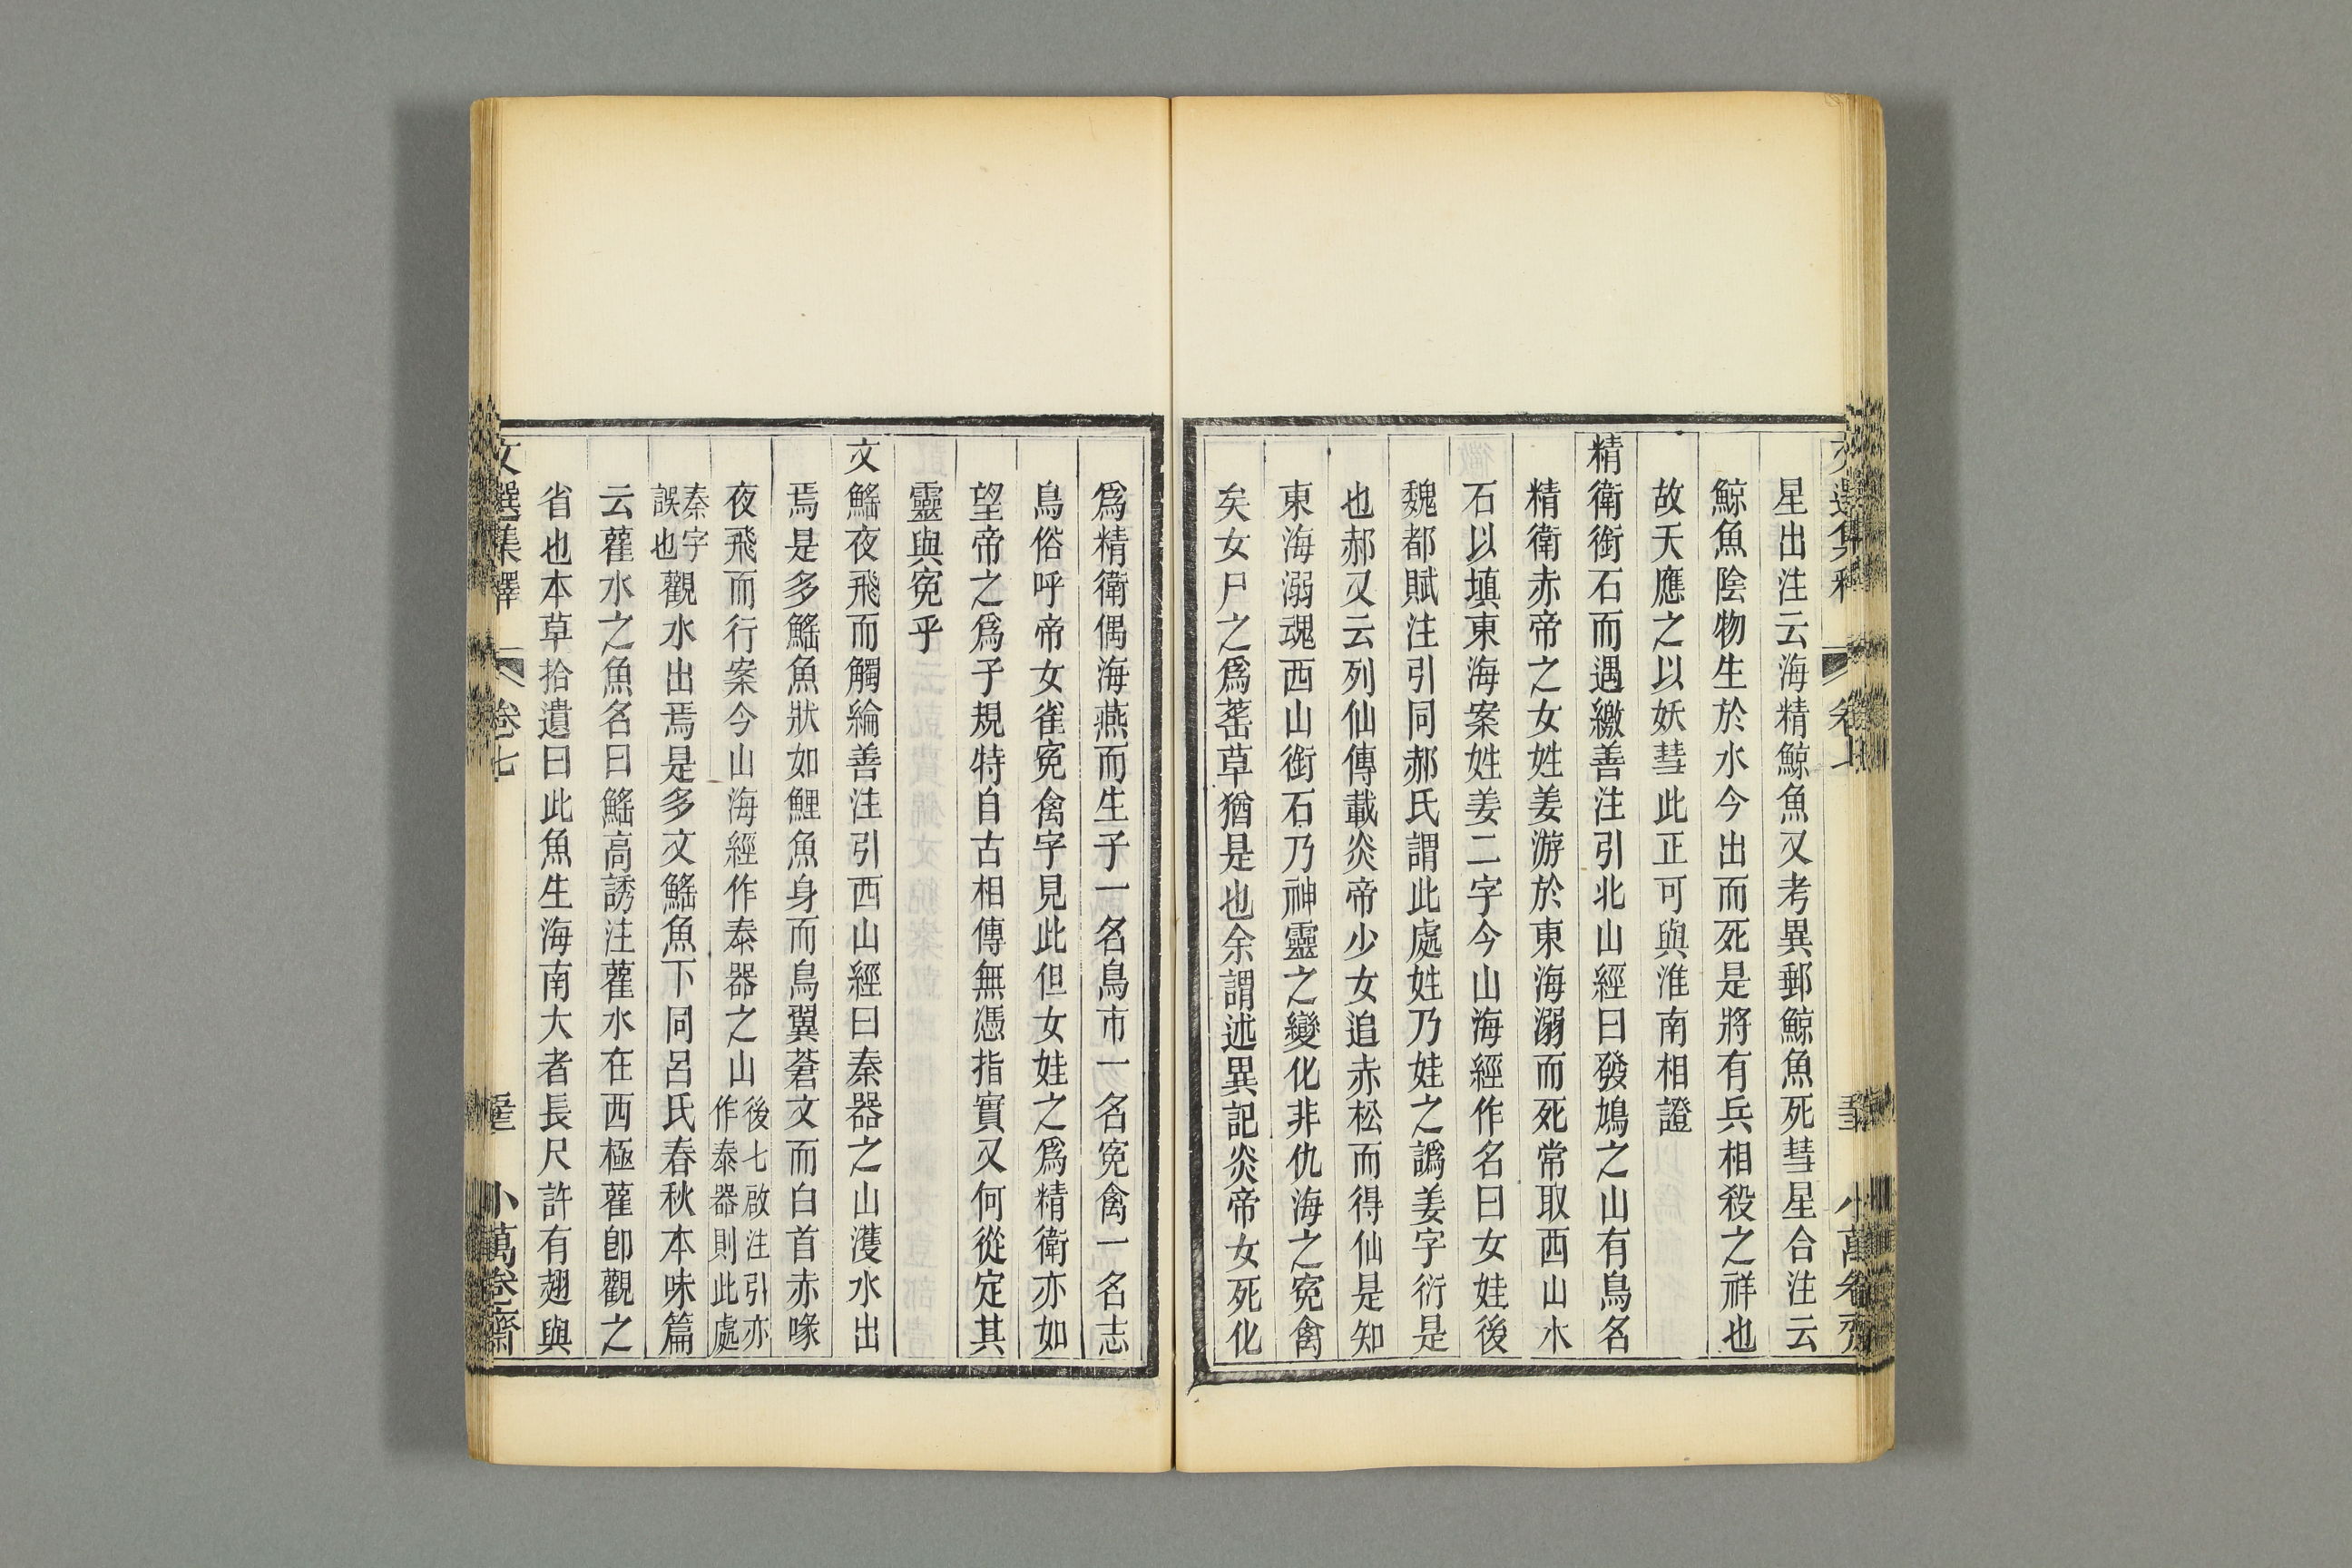 星出注云海精鯨魚又考異郵鯨魚死彗星合注云
鯨魚陰物生於水今出而死是將有兵相殺之祥也
故天應之以妖彗此正可與淮南相證
精衛銜石而遇繳善注引北山經曰發鳩之山有鳥名
精衛赤帝之女姓姜游於東海溺而死常取西山木
石以塡東海案姓姜二字今山海經作名曰女娃後
魏都賦注引同郝氏謂此處姓乃娃之譌姜字衍是
也郝又云列仙傳載炎帝少女追赤松而得仙是知
東海溺魂西山銜石乃神靈之變化非仇海之寃禽
矣女尸之爲䔄草猶是也余謂述異記炎帝女死化
爲精衛偶海燕而生子一名鳥市一名寃禽一名志
鳥俗呼帝女雀寃禽字見此但女娃之爲精衛亦如
望帝之爲子規特自古相傳無憑指實又何從定其
靈與寃乎
文鰩夜飛而觸綸善注引西山經曰秦器之山濩水出
焉是多鰩魚狀如鯉魚身而鳥翼蒼文而白首赤喙
夜飛而行案今山海經作泰器之山後七啟注引亦作泰器則此處
秦字誤也觀水出焉是多文鰩魚下同呂氏春秋本味篇
云雚水之魚名曰鰩高誘注雚水在西極雚卽觀之
省也本草拾遺曰此魚生海南大者長尺許有翅與
文選集釋 卷七 小萬卷齋